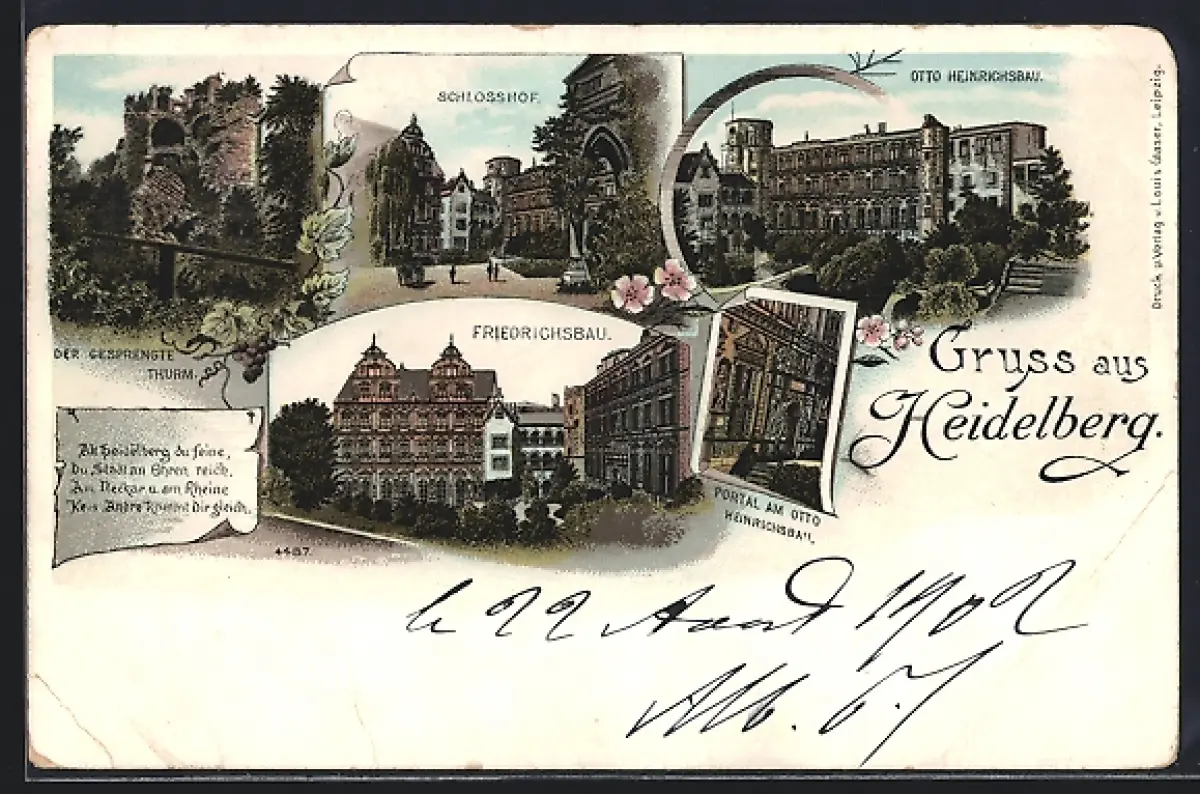 SCHLOSSHOF.
OTTO HEINRICHSBAU.
Druck u. Verlag v. Louis Glaser, Leipzig.
DER GESPRENGTE
THURM.
FRIEDRICHSBAU.
PORTAL AM OTTO
HEINRICHSBAU.
Gruss aus
Heidelberg.
Alt Heidelberg du feine,
Du Stadt an Ehren reich,
Am Neckar u. am Rheine
Kein' Andre kommt dir gleich.
4487.
le 22 Aout 1902
Alb.